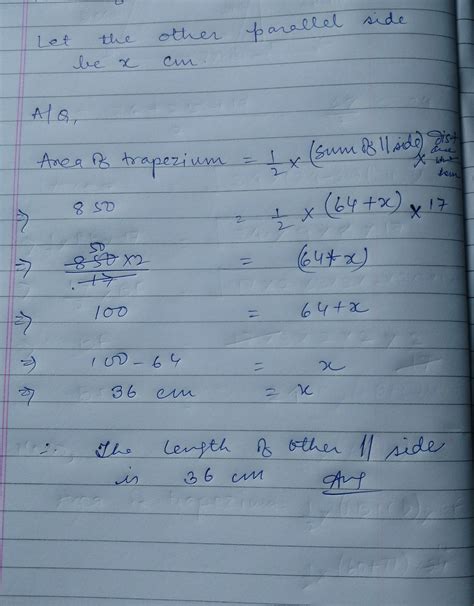 Let the other parallel side
be x cm.
A/Q,
Area of trapezium = 1/2 × (sum of || side) × dist
⇒ 850 = 1/2 × (64+x) × 17
⇒ 850 50 ×2 / 17 = (64+x)
⇒ 100 = 64+x
⇒ 100-64 = x
⇒ 36 cm = x
∴ The length of other || side
is 36 cm Ans